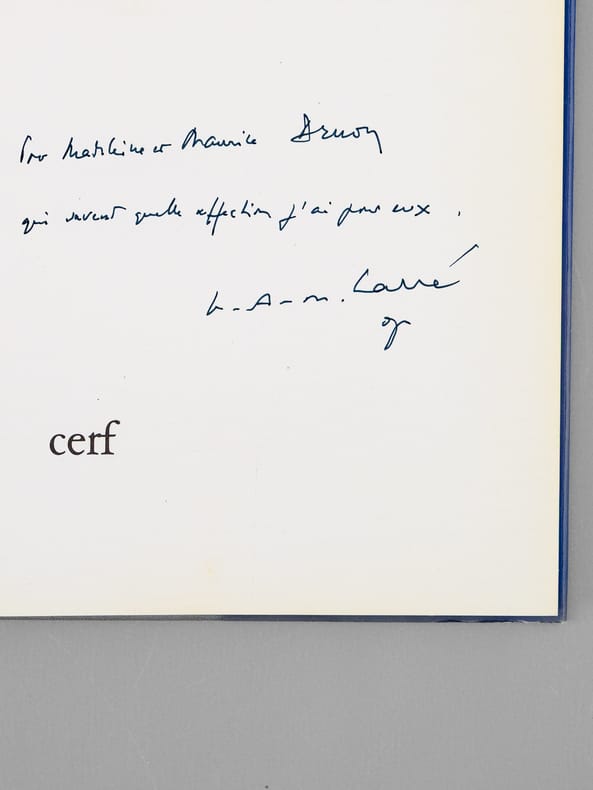 Pour Madeleine et Maurice Druon
qui savent quelle affection j'ai pour eux.
A-M. Carré
op
cerf